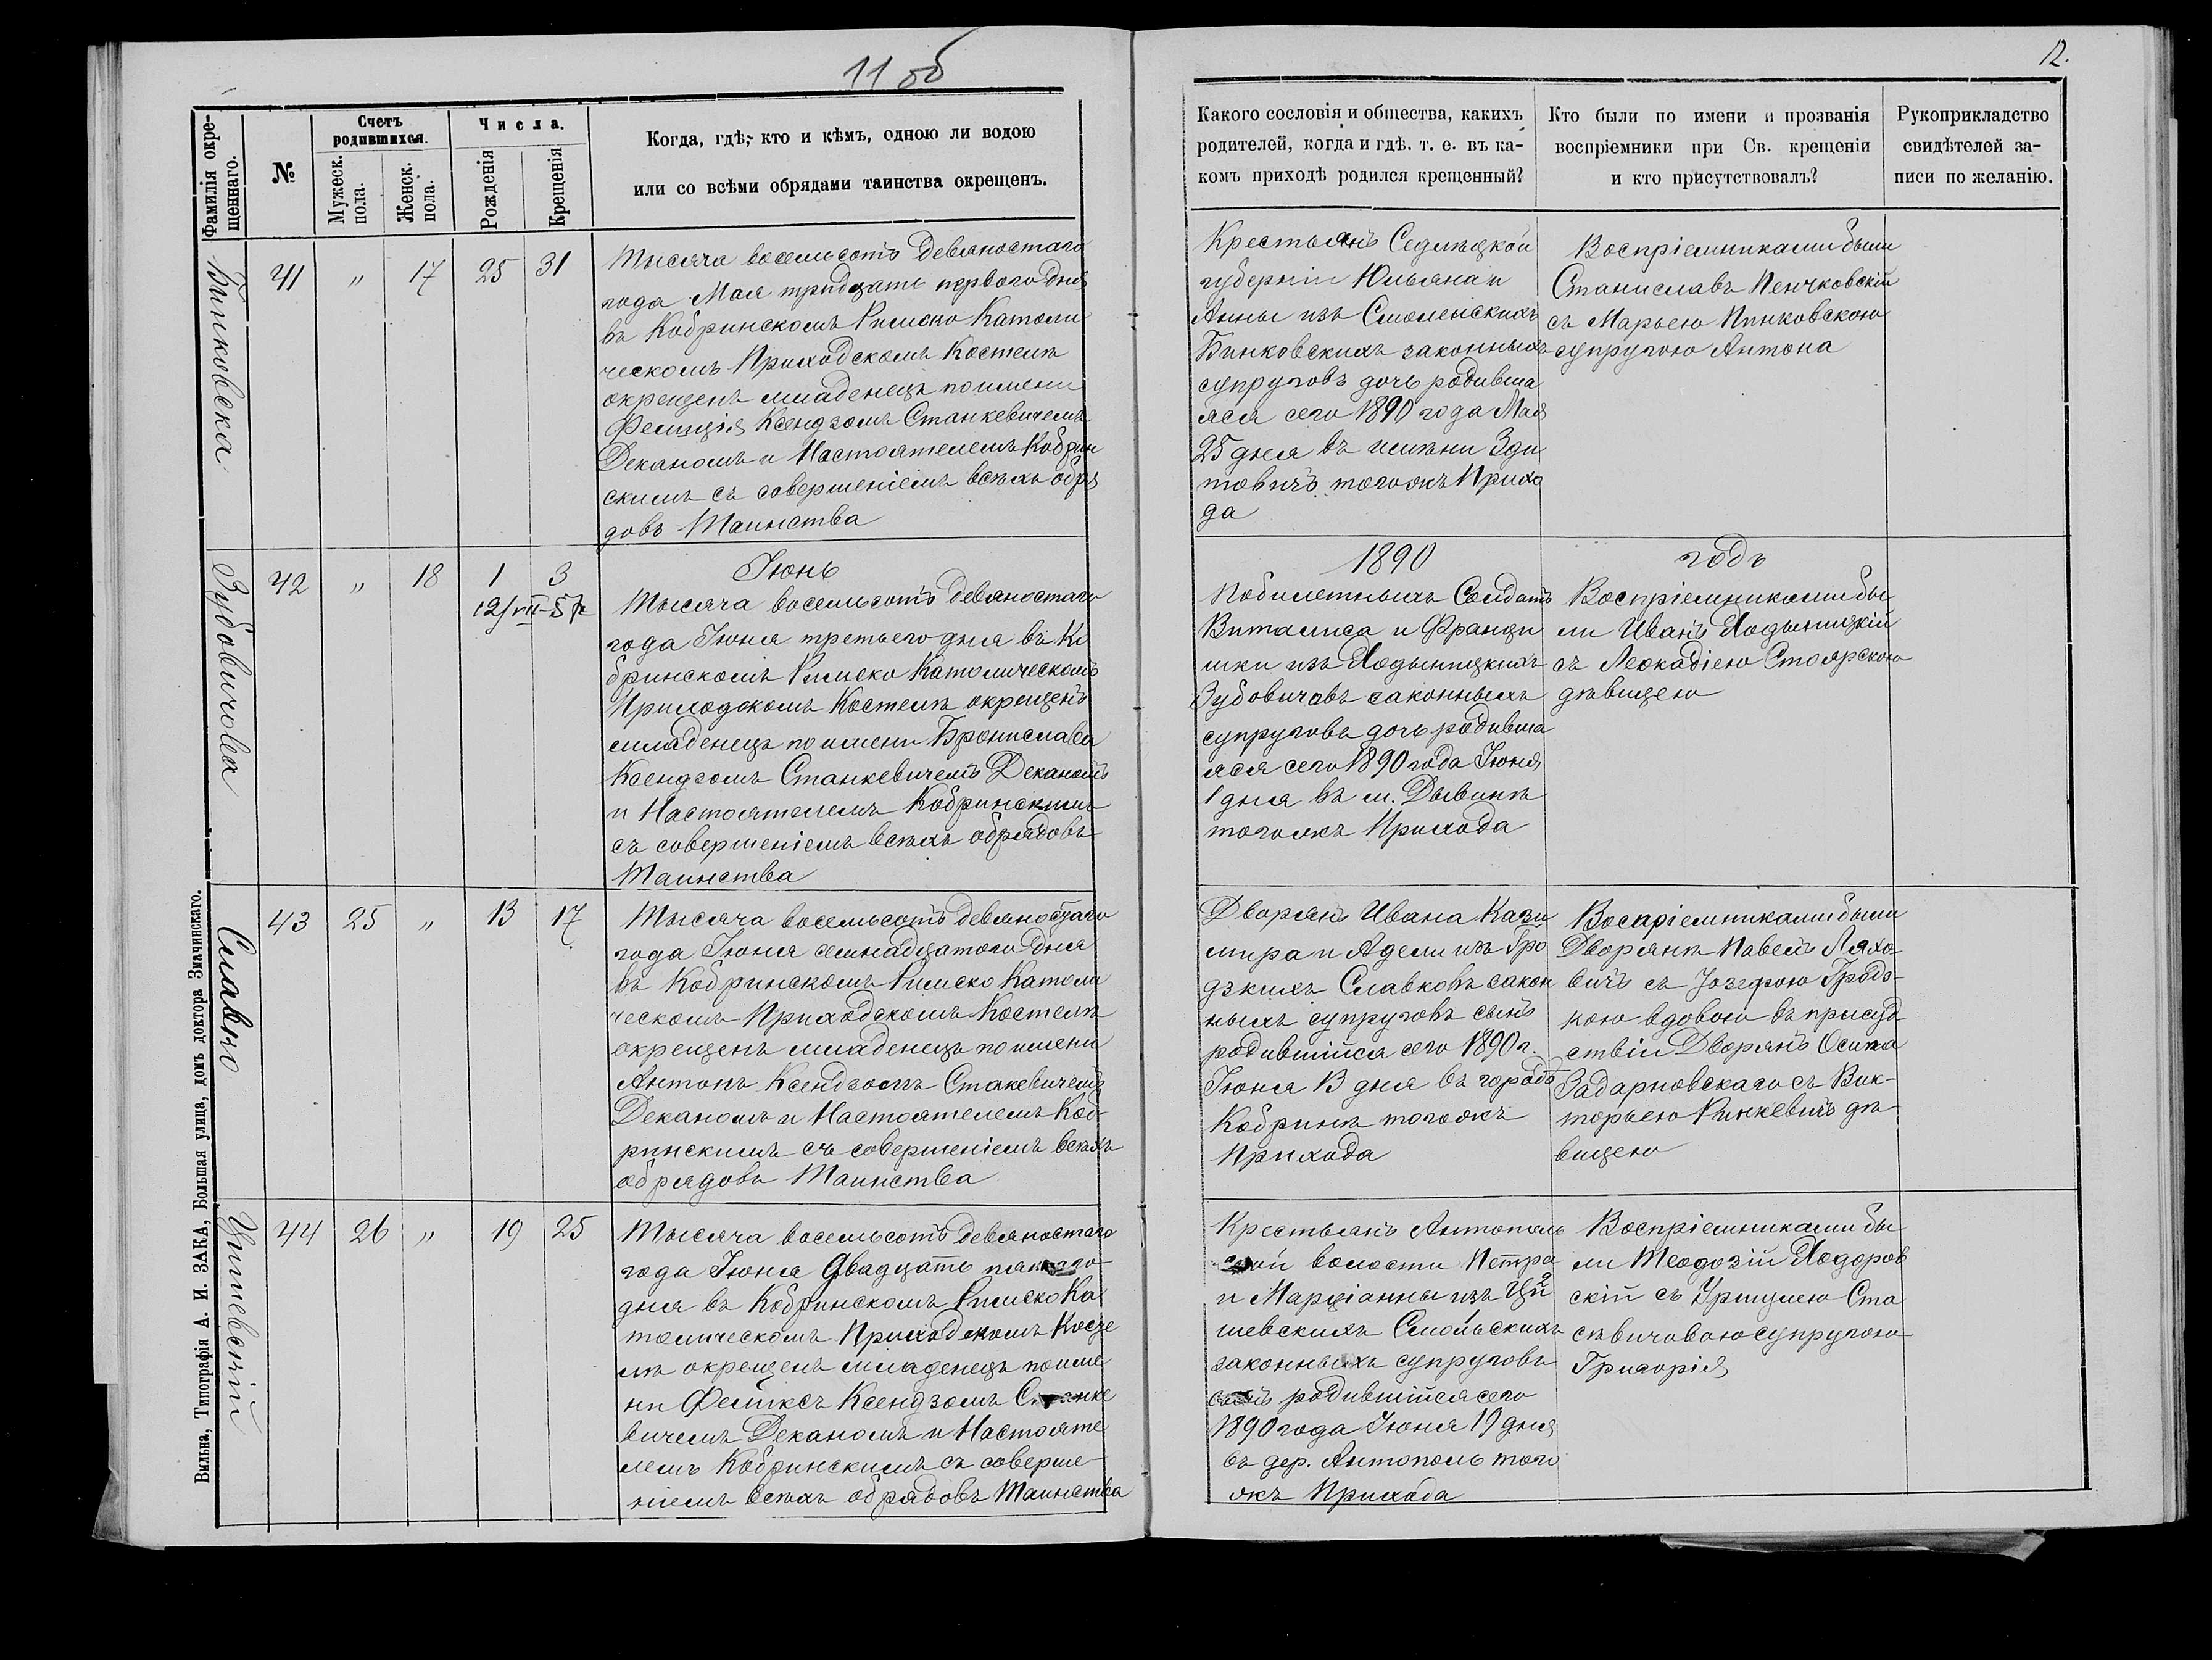 11 об
12.
Фамилія окре-
щеннаго.
№
Счетъ
родившихся.
Мужеск.
пола.
Женск.
пола.
Числа.
Рожденія
Крещенія
Когда, гдѣ, кто и кѣмъ, одною ли водою
или со всѣми обрядами таинства окрещенъ.
Какого сословія и общества, какихъ
родителей, когда и гдѣ. т. е. въ ка-
комъ приходѣ родился крещенный?
Кто были по имени и прозванія
воспріемники при Св. крещеніи
и кто присутствовалъ?
Рукоприкладство
свидѣтелей за-
писи по желанію.
Бинковска
41 " 17 25 31
Тысяча восемьсотъ девяностаго
года Мая тридцать перваго дня
въ Кобринскомъ Римско Католи
ческомъ Приходскомъ Костелѣ
окрещенъ младенецъ по имени
Фелиція Ксендзомъ Станкевичемъ
Деканомъ и Настоятелемъ Кобрин
скимъ съ совершеніемъ всѣхъ обря
довъ Таинства
Крестьянъ Седлѣцкой
губерніи Юльяна и
Анны изъ Смоленскихъ
Бинковскихъ законныхъ
супруговъ дочь родивша
яся сего 1890 года Мая
25 дня въ имѣніи Зди
товичъ тогожъ Прихо
да
Воспріемниками были
Станиславъ Пенчковскій
съ Марьею Пинковскою
супругою Антона
Зубовичова
42 " 18 1 3
Іюнь
1890 годъ
Тысяча восемьсотъ девяностаго
года Іюня третьего дня въ Ко
бринскомъ Римско Католическомъ
Приходскомъ Костелѣ окрещенъ
младенецъ по имени Бронислава
Ксендзомъ Станкевичемъ Деканомъ
и Настоятелемъ Кобринскимъ
съ совершеніемъ всѣхъ обрядовъ
Таинства
Побилетныхъ Солдатъ
Виталиса и Франци
шки изъ Ходыницкихъ
Зубовичовъ законныхъ
супруговъ дочь родивша
яся сего 1890 года Іюня
1 дня въ м. Дывинѣ
тогожъ Прихода
Воспріемниками бы
ли Иванъ Ходыницкій
съ Леокадіею Столярскою
дѣвицею
Славко
43 25 " 13 17
Тысяча восемьсотъ девяностаго
года Іюня семнадцатого дня
въ Кобринскомъ Римско Католи
ческомъ Приходскомъ Костелѣ
окрещенъ младенецъ по имени
Антонъ Ксендзомъ Стакевичемъ
Деканомъ и Настоятелемъ Коб-
ринскимъ съ совершеніемъ всѣхъ
обрядовъ Таинства
Дворянъ Ивана Кази
мира и Адели изъ Гро
дзкихъ Славковъ закон
ныхъ супруговъ сынъ
родившійся сего 1890 г.
Іюня 13 дня въ городѣ
Кобринѣ тогожъ
Прихода
Воспріемниками были
Дворянѣ Павелъ Ляхо-
вичъ съ Юзефою Гродз-
кою вдовою въ присуд
ствіи Дворянъ Осипа
Задарновскаго съ Вик-
торьею Ринкевичъ дѣ-
вицею
44 26 " 19 25
Тысяча восемьсотъ девяностаго
года Іюня двадцать пятаго
дня въ Кобринскомъ Римско Ка
толическомъ Приходскомъ Косте
лѣ окрещенъ младенецъ по име
ни Феликсъ Ксендзомъ Станке
вичемъ Деканомъ и Настояте
лемъ Кобринскимъ съ соверше-
ніемъ всѣхъ обрядовъ Таинства
Крестьянъ Антополь
ской волости Петра
и Марціанны изъ
шевскихъ Смольскихъ
законныхъ супруговъ
сынъ родившійся сего
1890 года Іюня 19 дня
въ дер. Антополь того
жъ Прихода
Воспріемниками бы
ли Теодозій Ходоров
скій съ Уршулею Ста
севичовою супругою
Григорія
Вильна, Типографія А. И. ЗАКА, Большая улица, домъ доктора Значинскаго.